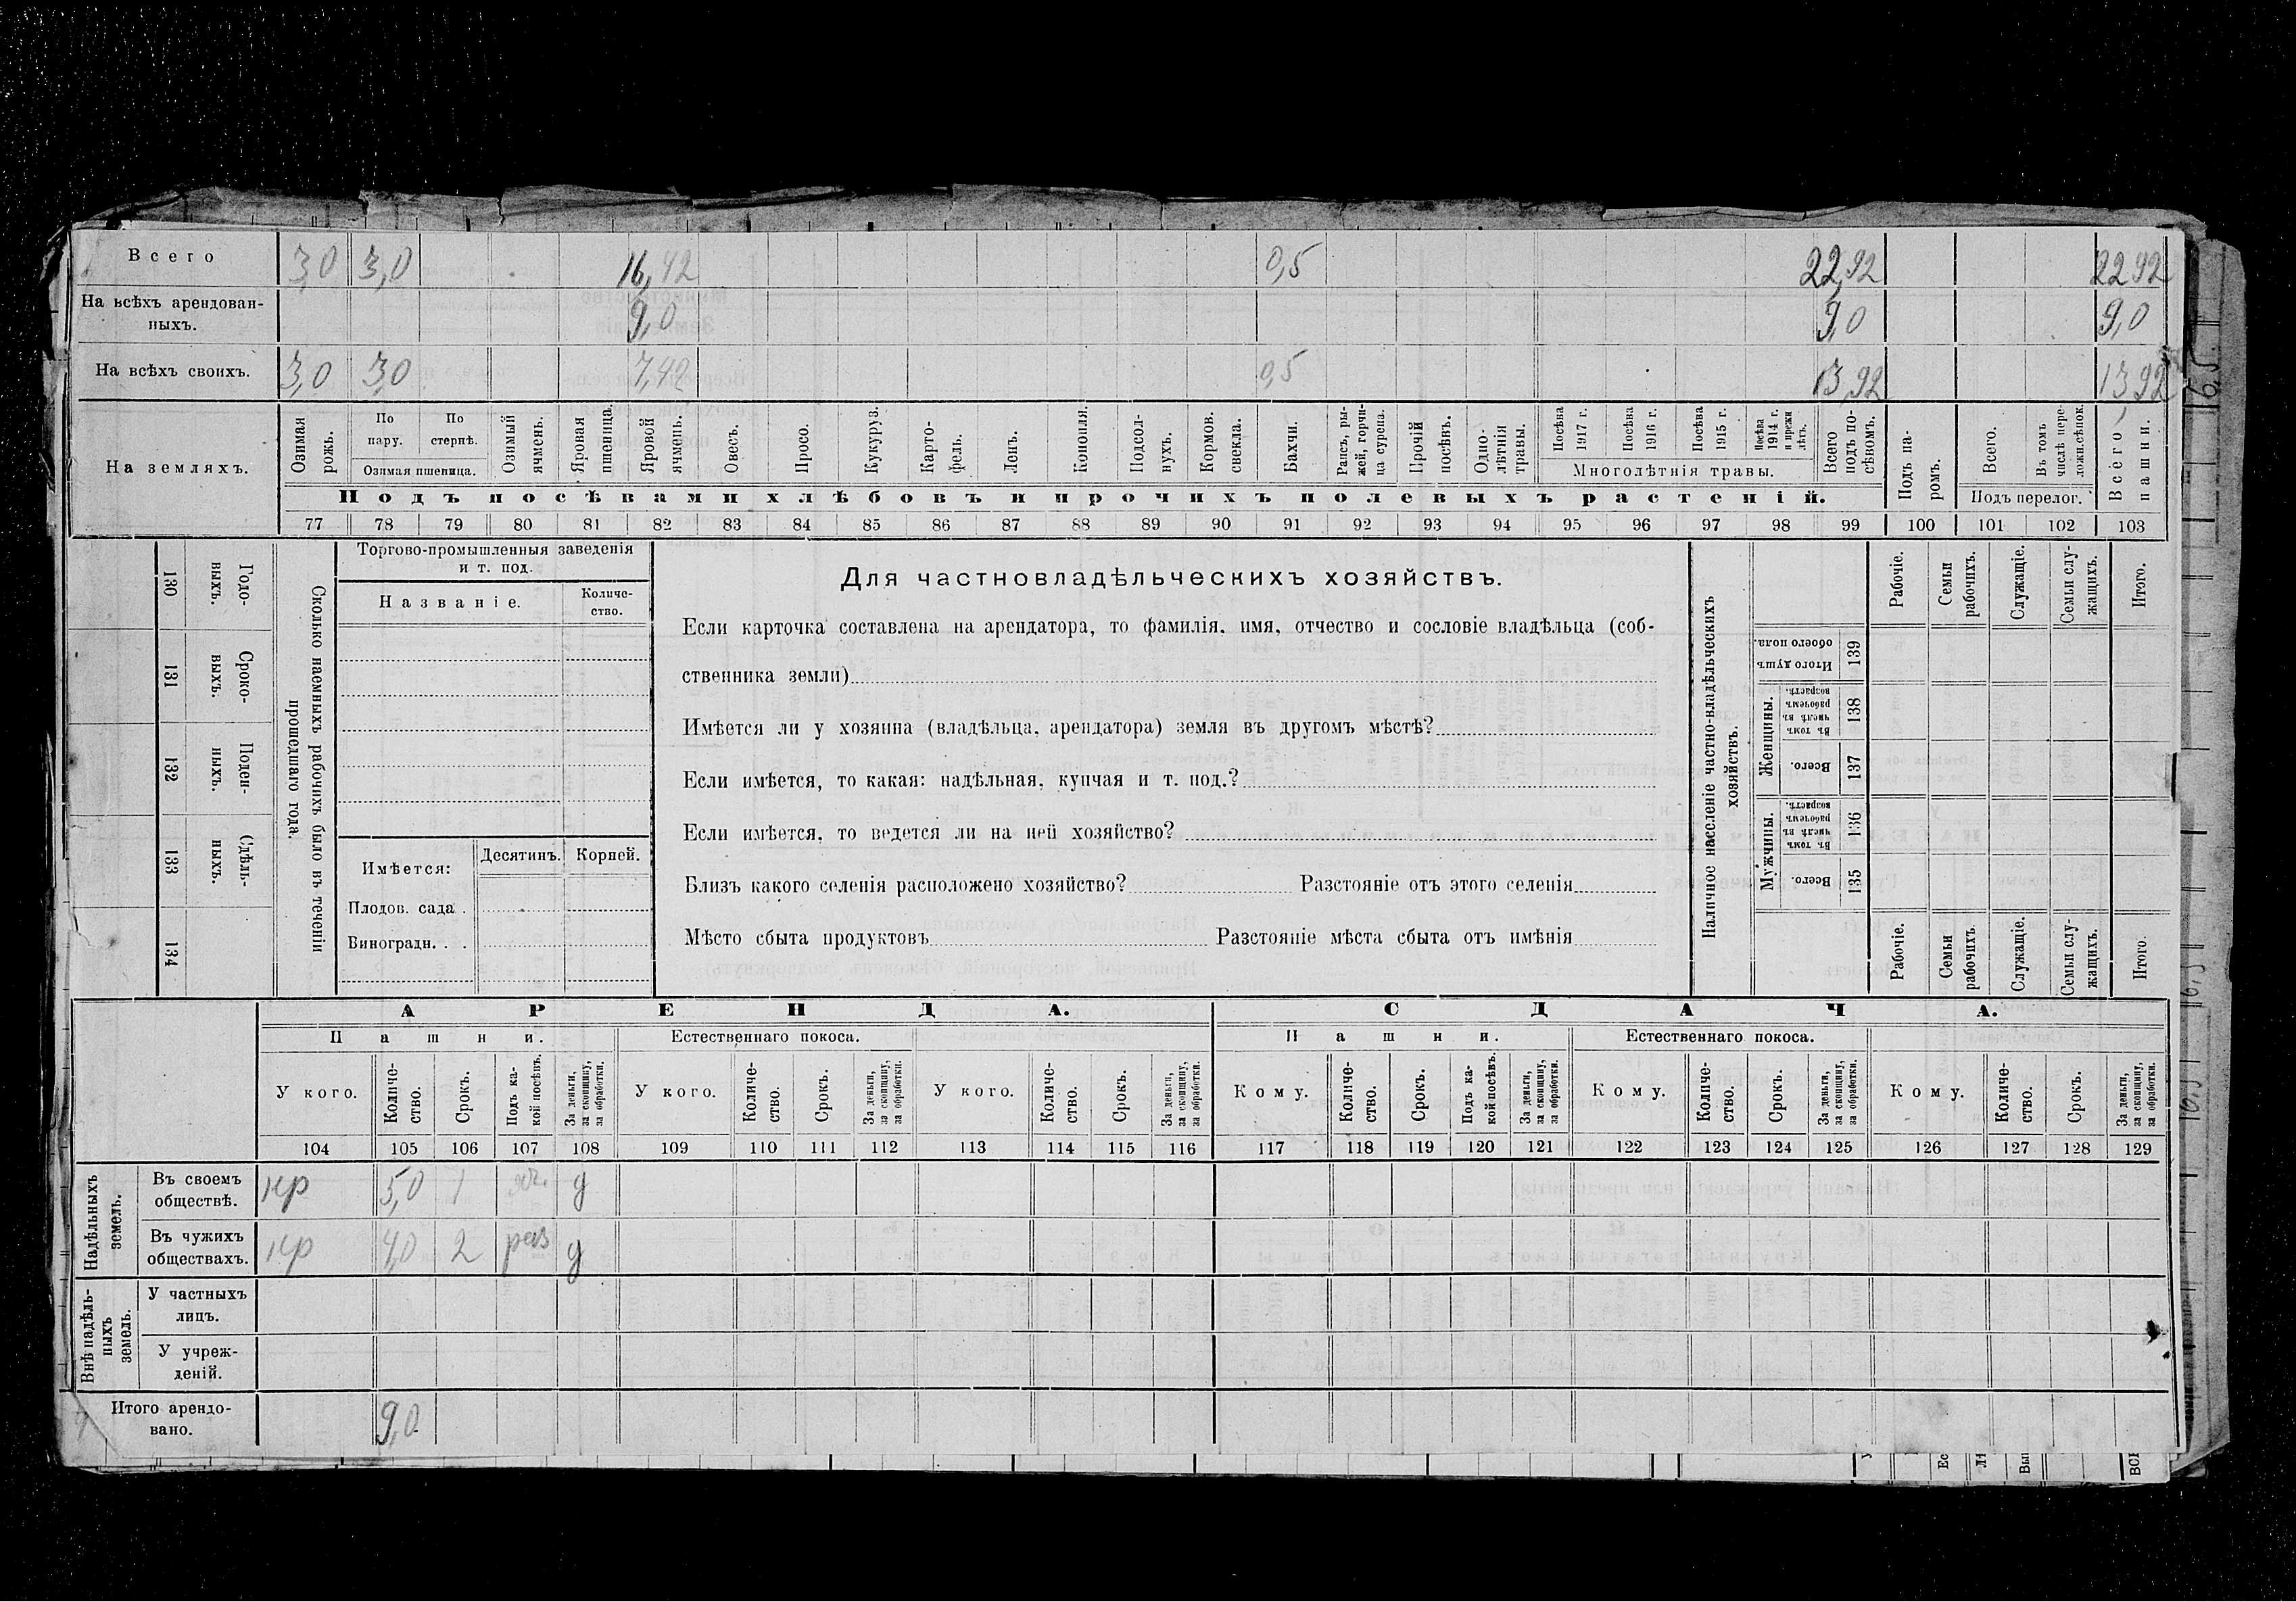 Всего 3,0 3,0 16,42 0,5 22,92 22 92
На всѣхъ арендован-
ныхъ. 9,0 9,0 9,0
На всѣхъ своихъ. 3,0 3,0 7,42 0,5 13,92 13 92
На земляхъ.
Озимая рожь.
По пару.
По стернѣ.
Озимая пшеница.
Озимый ячмень.
Яровая пшеница.
Яровой ячмень.
Овесъ.
Просо.
Кукуруз.
Карто-
фель.
Ленъ.
Конопля.
Подсол-
нухъ.
Кормов. свекла.
Бахчи.
Рапсъ, ры-
жей, горчи-
ца сурепа.
Прочій посѣвъ.
Одно-
лѣтнія травы.
Посѣва 1917 г.
Посѣва 1916 г.
Посѣва 1915 г.
Посѣва 1914 г. и прежн лѣтъ.
Многолѣтнія травы.
Всего подъ по-
сѣвомъ.
Подъ па-
ромъ.
Всего.
Въ томъ числѣ пере-
ложн.сѣнок.
Подъ перелог.
Всего пашни.
Подъ посѣвами хлѣбовъ и прочихъ полевыхъ растеній.
77 78 79 80 81 82 83 84 85 86 87 88 89 90 91 92 93 94 95 96 97 98 99 100 101 102 103
Сколько наемныхъ рабочихъ было въ теченіи
прошедшаго года.
Годо-
выхъ.
130
Сроко-
выхъ.
131
Поден-
ныхъ.
132
Сдѣль-
ныхъ.
133
134
Торгово-промышленныя заведенія
и т. под.
Названіе.
Количе-
ство.
Имѣется:
Десятинъ.
Корней.
Плодов. сада .
Виноградн. . .
Для частновладѣльческихъ хозяйствъ.
Если карточка составлена на арендатора, то фамилія, имя, отчество и сословіе владѣльца (соб-
ственника земли)
Имѣется ли у хозяина (владѣльца, арендатора) земля въ другомъ мѣстѣ?
Если имѣется, то какая: надѣльная, купчая и т. под.?
Если имѣется, то ведется ли на ней хозяйство?
Близъ какого селенія расположено хозяйство? Разстояніе отъ этого селенія
Мѣсто сбыта продуктовъ Разстояніе мѣста сбыта отъ имѣнія
Наличное населеніе частно-владѣльческихъ
хозяйствъ.
Рабочіе.
Семьи рабочихъ.
Служащіе.
Семьи слу-
жащихъ.
Итого.
Итого душъ обоего пола.
139
Женщины.
Въ томъ числѣ въ рабочемъ возрастѣ.
138
Всего.
137
Мужчины.
Въ томъ числѣ въ рабочемъ возрастѣ.
136
Всего.
135
Рабочіе.
Семьи рабочихъ.
Служащіе.
Семьи слу-
жащихъ.
Итого.
АРЕНДА. СДАЧА.
Пашни. Естественнаго покоса. Пашни. Естественнаго покоса.
У кого.
Количе-
ство.
Срокъ.
Подъ ка-
кой посѣвъ.
За деньги, за скопщину, за обработки.
У кого.
Количе-
ство.
Срокъ.
За деньги, за скопщину, за обработки.
У кого.
Количе-
ство.
Срокъ.
За деньги, за скопщину, за обработки.
Кому.
Количе-
ство.
Срокъ.
Подъ ка-
кой посѣвъ.
За деньги, за скопщину, за обработки.
Кому.
Количе-
ство.
Срокъ.
За деньги, за скопщину, за обработки.
Кому.
Количе-
ство.
Срокъ.
За деньги, за скопщину, за обработки.
104 105 106 107 108 109 110 111 112 113 114 115 116 117 118 119 120 121 122 123 124 125 126 127 128 129
Надѣльныхъ
земель.
Въ своемъ
обществѣ. кр 5,0 1 яч. д
Въ чужихъ
обществахъ. кр 4,0 2 раз д
Внѣ надѣль-
ныхъ
земель.
У частныхъ
лицъ.
У учреж-
деній.
Итого арендо-
вано. 9,0